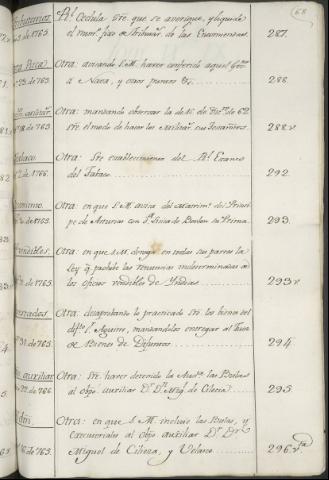 68
Rl. Cedula sre. que se averigue, y liquide
el num. fixo de Tributar.s de las Encomiendas
287.
de 1765.
Otra: avisando S.M. haver conferido aquel Gov.no
á Nava, y otros puntos &c.
288
de 765.
Otra: mandando observar la de 16 de Dic.re de 62
sre. el modo de hacer los Militar.s sus Testam.tos
288.v.
de 765.
Tabaco
Otra: Sre establecimiento del Rl. Estanco
del Tabaco
292
de 1766.
Otra: en que S.M. avisa del Matrim.o del Princi-
pe de Asturias con D.a Luisa de Borbon su Prima.
293.
de 1765.
Otra: en que S.M. deroga en todas sus partes la
Ley q. prohibe las renuncias indeterminadas de
los oficios vendibles de Yndias
293v
de 1765.
Otra: desaprobando lo practicado sre. los bienes del
dif.to Aguirre, mandandolos entregar al Juzg.
de Bienes de Difuntos
294
de 765.
auxiliar
Otra: Sre. haver detenido la Aud.a las Bulas
al obpo. auxiliar D.r D.n Mig.l de Cilieza
295
de 765.
Otra: en que S.M. incluye las Bulas, y
Executoriales al obpo. auxiliar D.r D.n
Miguel de Cilieza, y Velasco
296.v.ta
de 765.